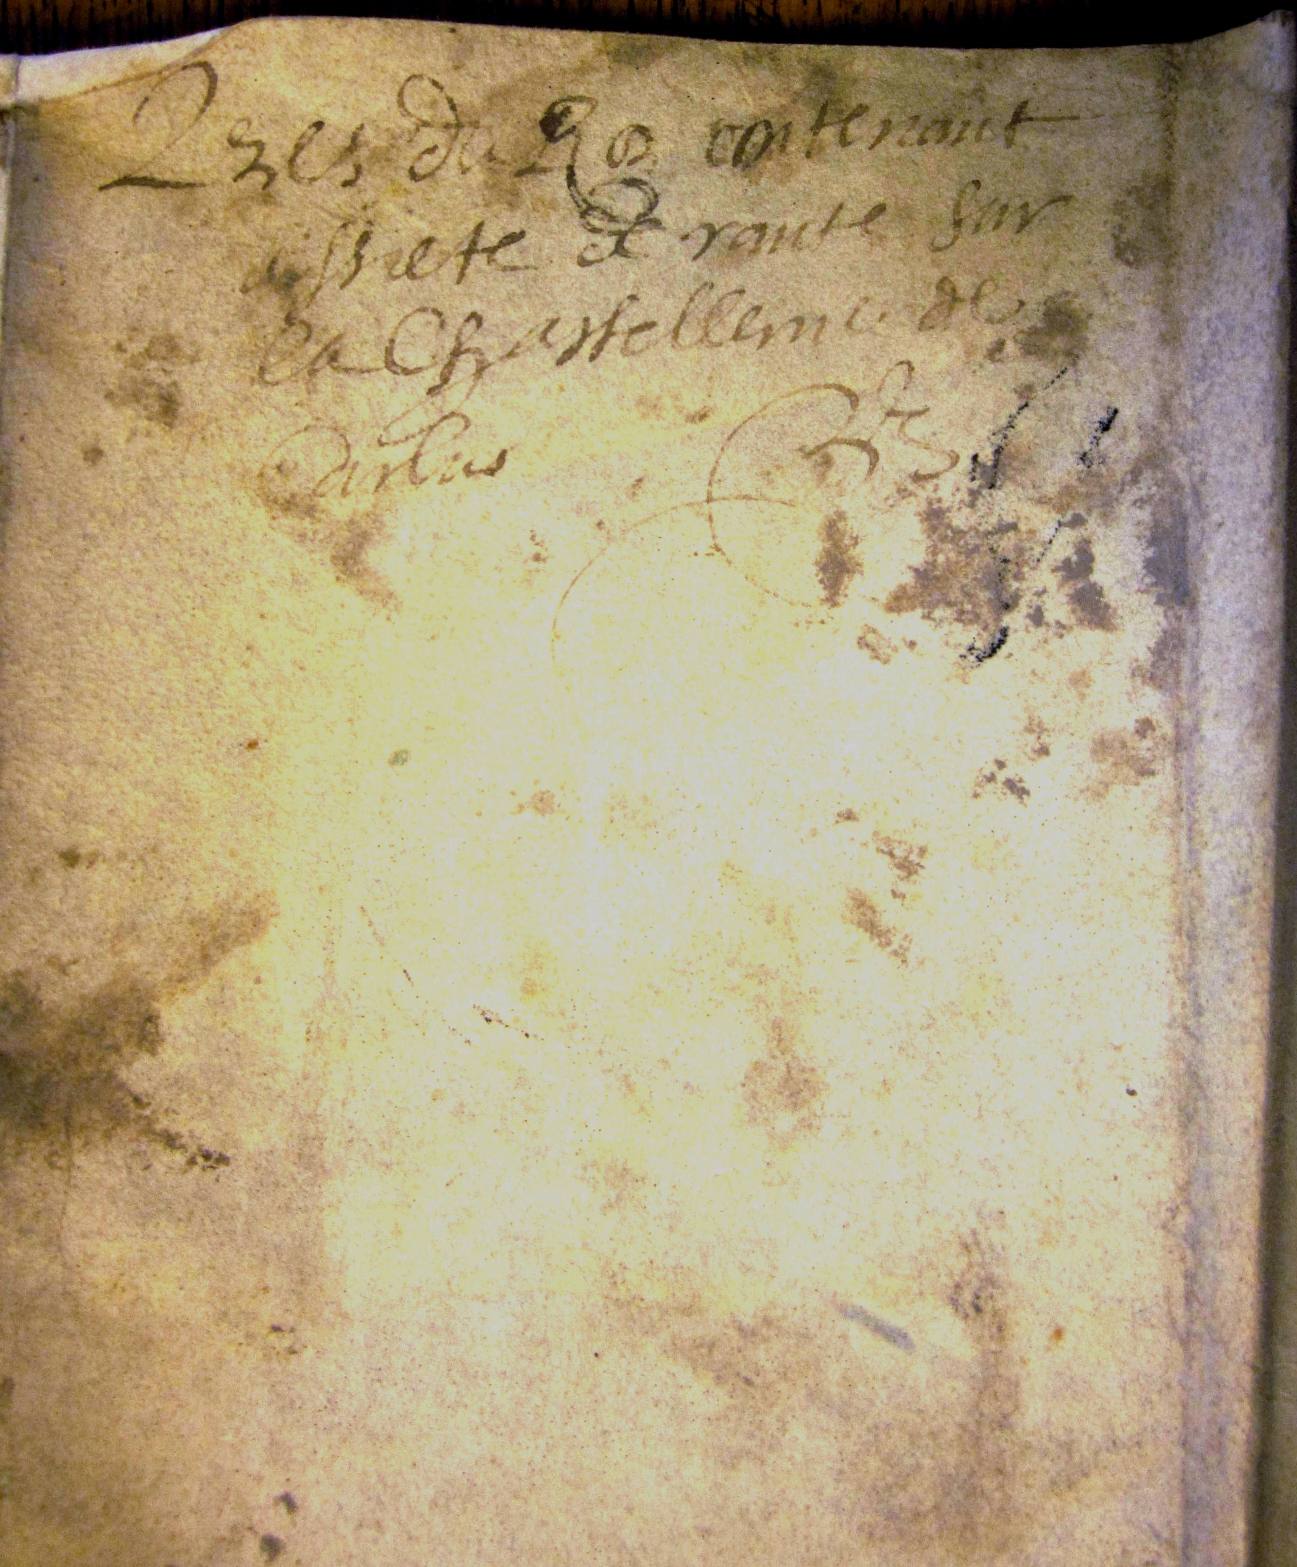 Lres du Roy contenant
assiete de rante sur
la Chastellenie de
Carlus